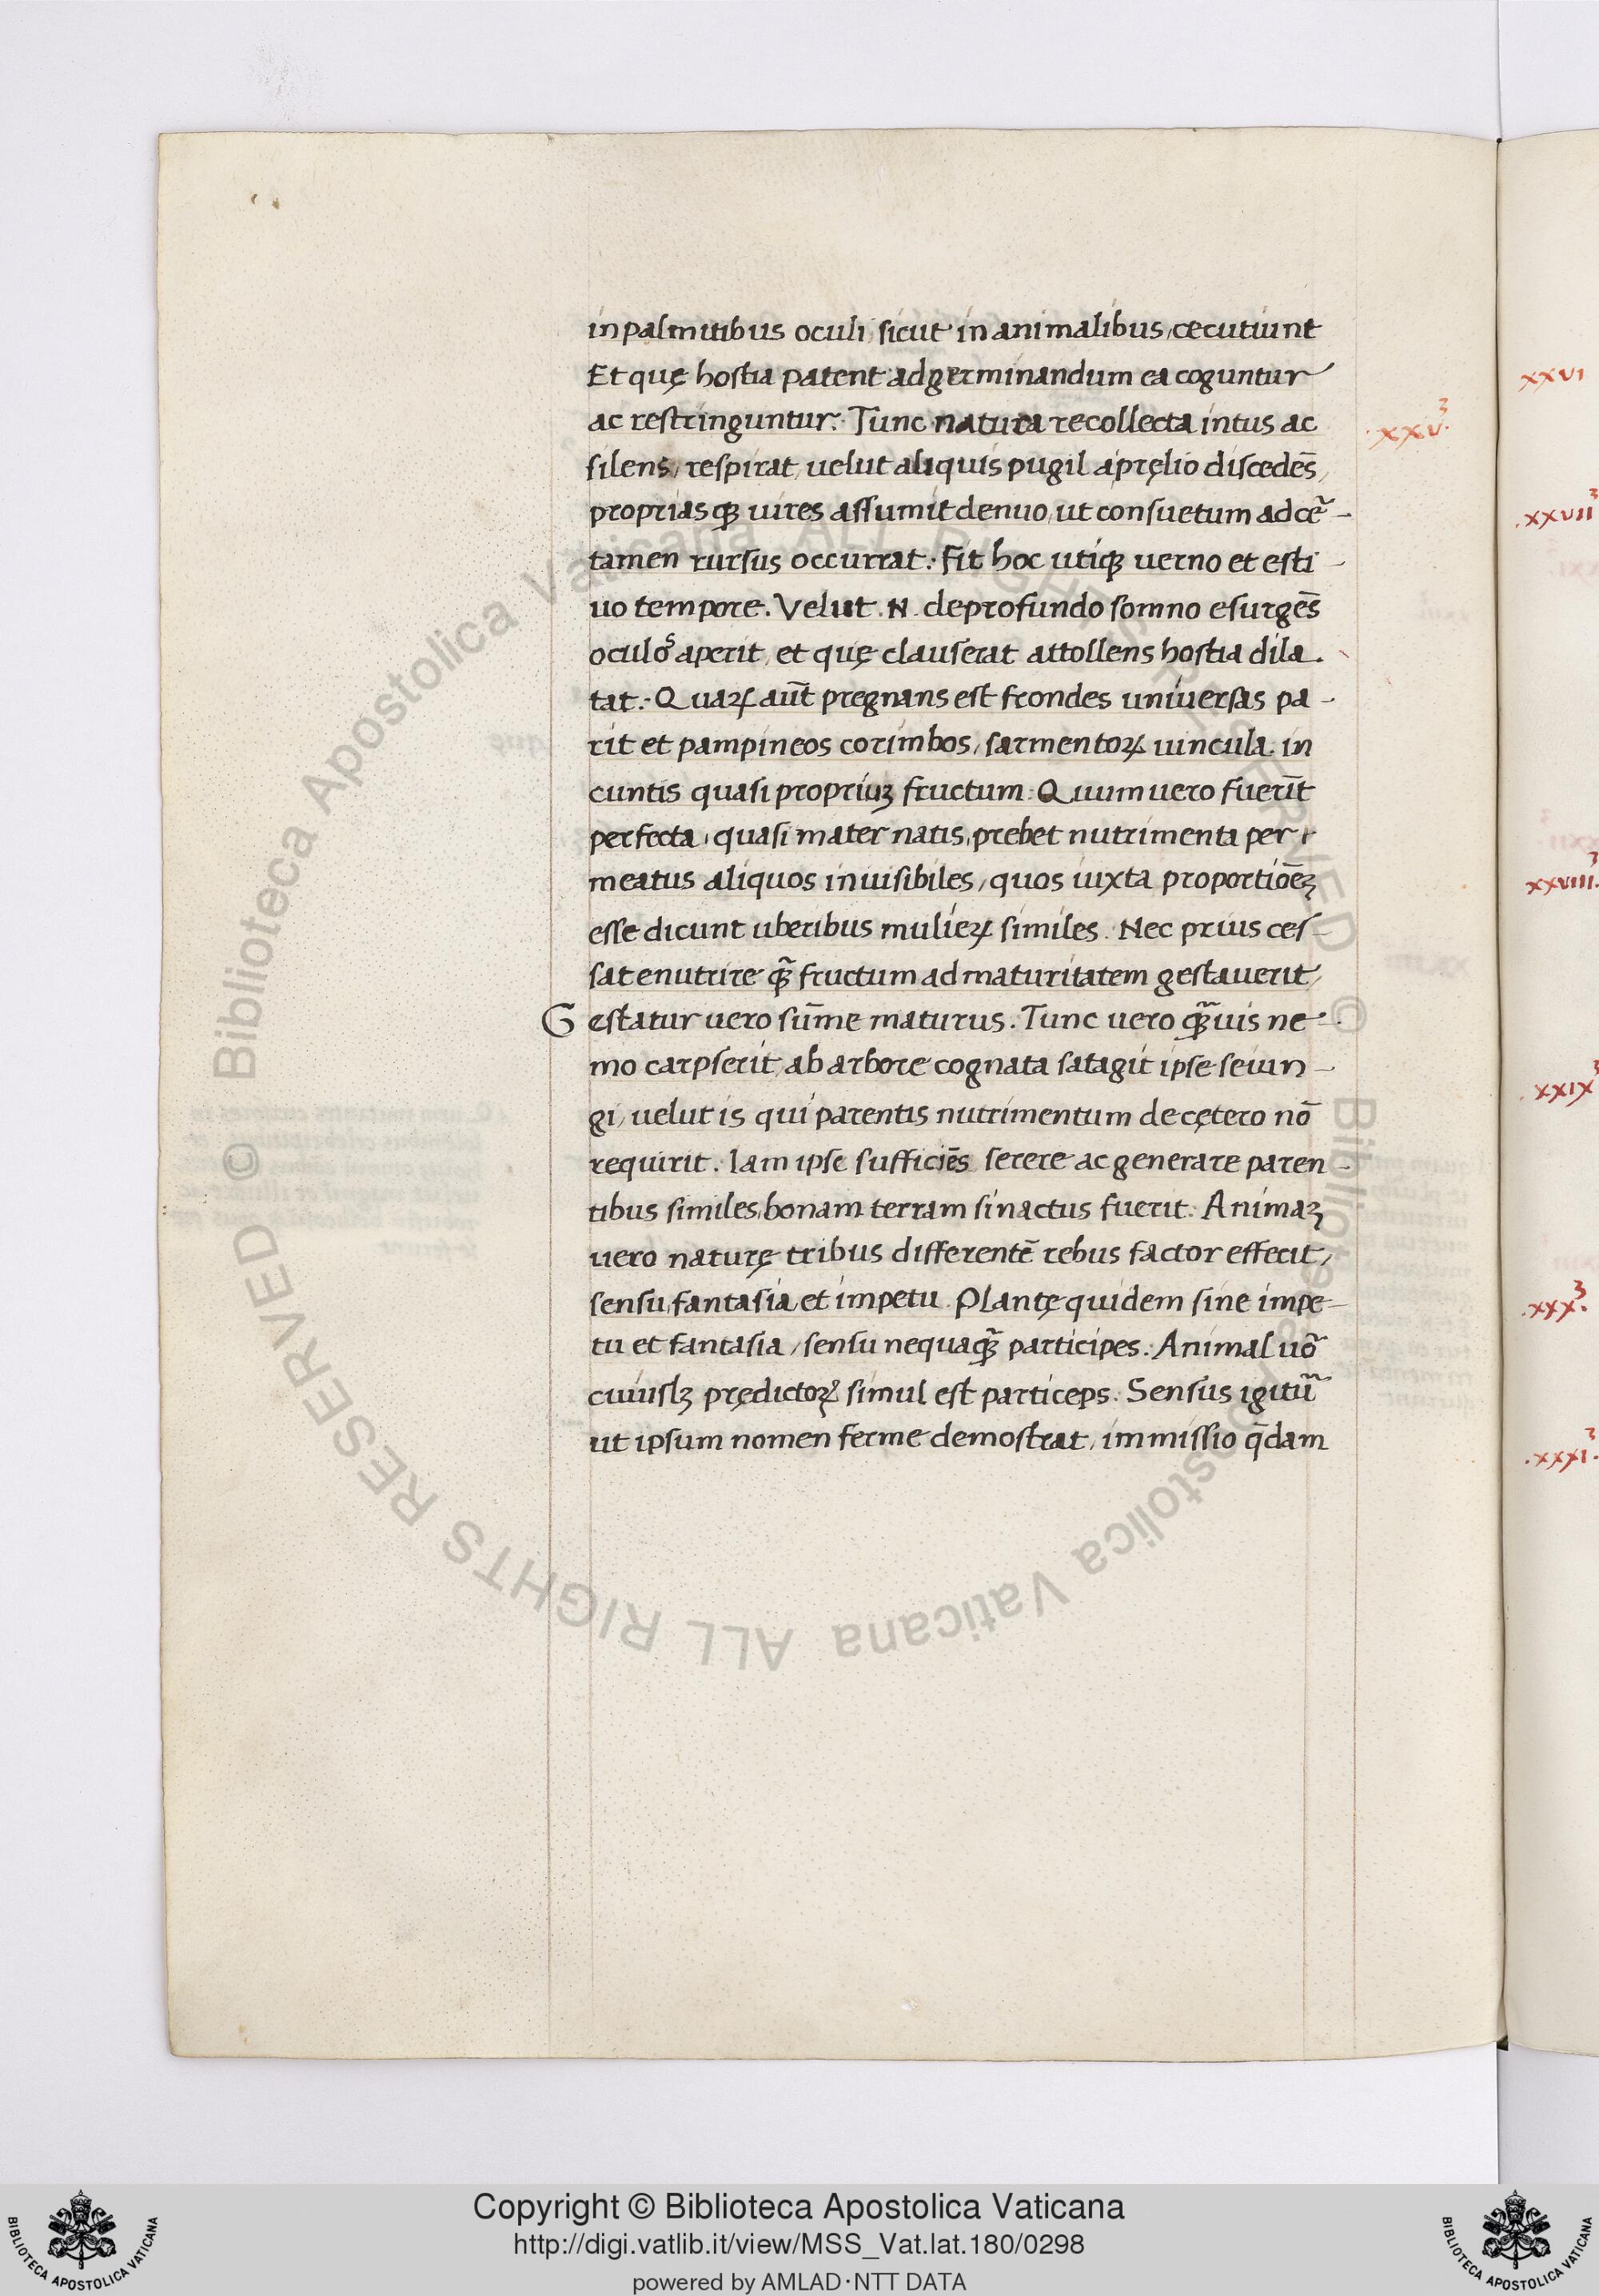 in palmitibus oculi, sicut in animalibus, cecutiunt
Et quę hostia patent ad germinandum ea coguntur
ac restringuntur. Tunc natura recollecta intus ac
.xxv.
silens, respirat, velut aliquis pugil a pręlio discedēs,
propriasqꝫ uires assumit denuo, ut consuetum ad cer̃-
tamen rursus occurrat. Fit hoc utiqꝫ uerno et esti-
uo tempore. Velut .N. de profundo somno esurgēs
oculos aperit, et quę clauserat attollens hostia dila-
tat. Quaꝝ aūt pregnans est frondes universas pa-
rit et pampineos corimbos, sarmentoꝝ uincula in
cuntis quasi propriuꝫ fructum. Quum uero fuerīt
perfecta, quasi mater natis, prebet nutrimenta per
meatus aliquos inuisibiles, quos iuxta proportiōeꝫ
esse dicunt uberibus mulieꝝ similes. Nec prius ces-
sat enutrire qꝫ̃ fructum ad maturitatem gestauerit,
Gestatur uero sūme maturus. Tunc uero qꝫ̃uis ne-
mo carpserit, ab arbore cognata satagit ipse seiun-
gi, velut is qui parentis nutrimentum de cętero nō
requirit. Iam ipse sufficiēs serere ac generare paren-
tibus similes, bonam terram si nactus fuerit. Animaꝫ
uero naturę tribus differentē rebus factor effecit,
sensu, fantasia, et impetu. Plantę quidem sine impe-
tu et fantasia, sensu nequaqꝫ̃ participes. Animal uõ
cuiuslꝫ prędictoꝝ simul est particeps. Sensus igitũ
ut ipsum nomen ferme demostrat, immissio q̄dam
xxvi
.xxvii
xxviii.
.xxix
.xxx.
.xxxi.
Copyright © Biblioteca Apostolica Vaticana
http://digi.vatlib.it/view/MSS_Vat.lat.180/0298
powered by AMLAD·NTT DATA
BIBLIOTECA APOSTOLICA VATICANA
BIBLIOTECA APOSTOLICA VATICANA
© Biblioteca Apostolica Vaticana ALL RIGHTS RESERVED © Biblioteca Apostolica Vaticana ALL RIGHTS RESERVED